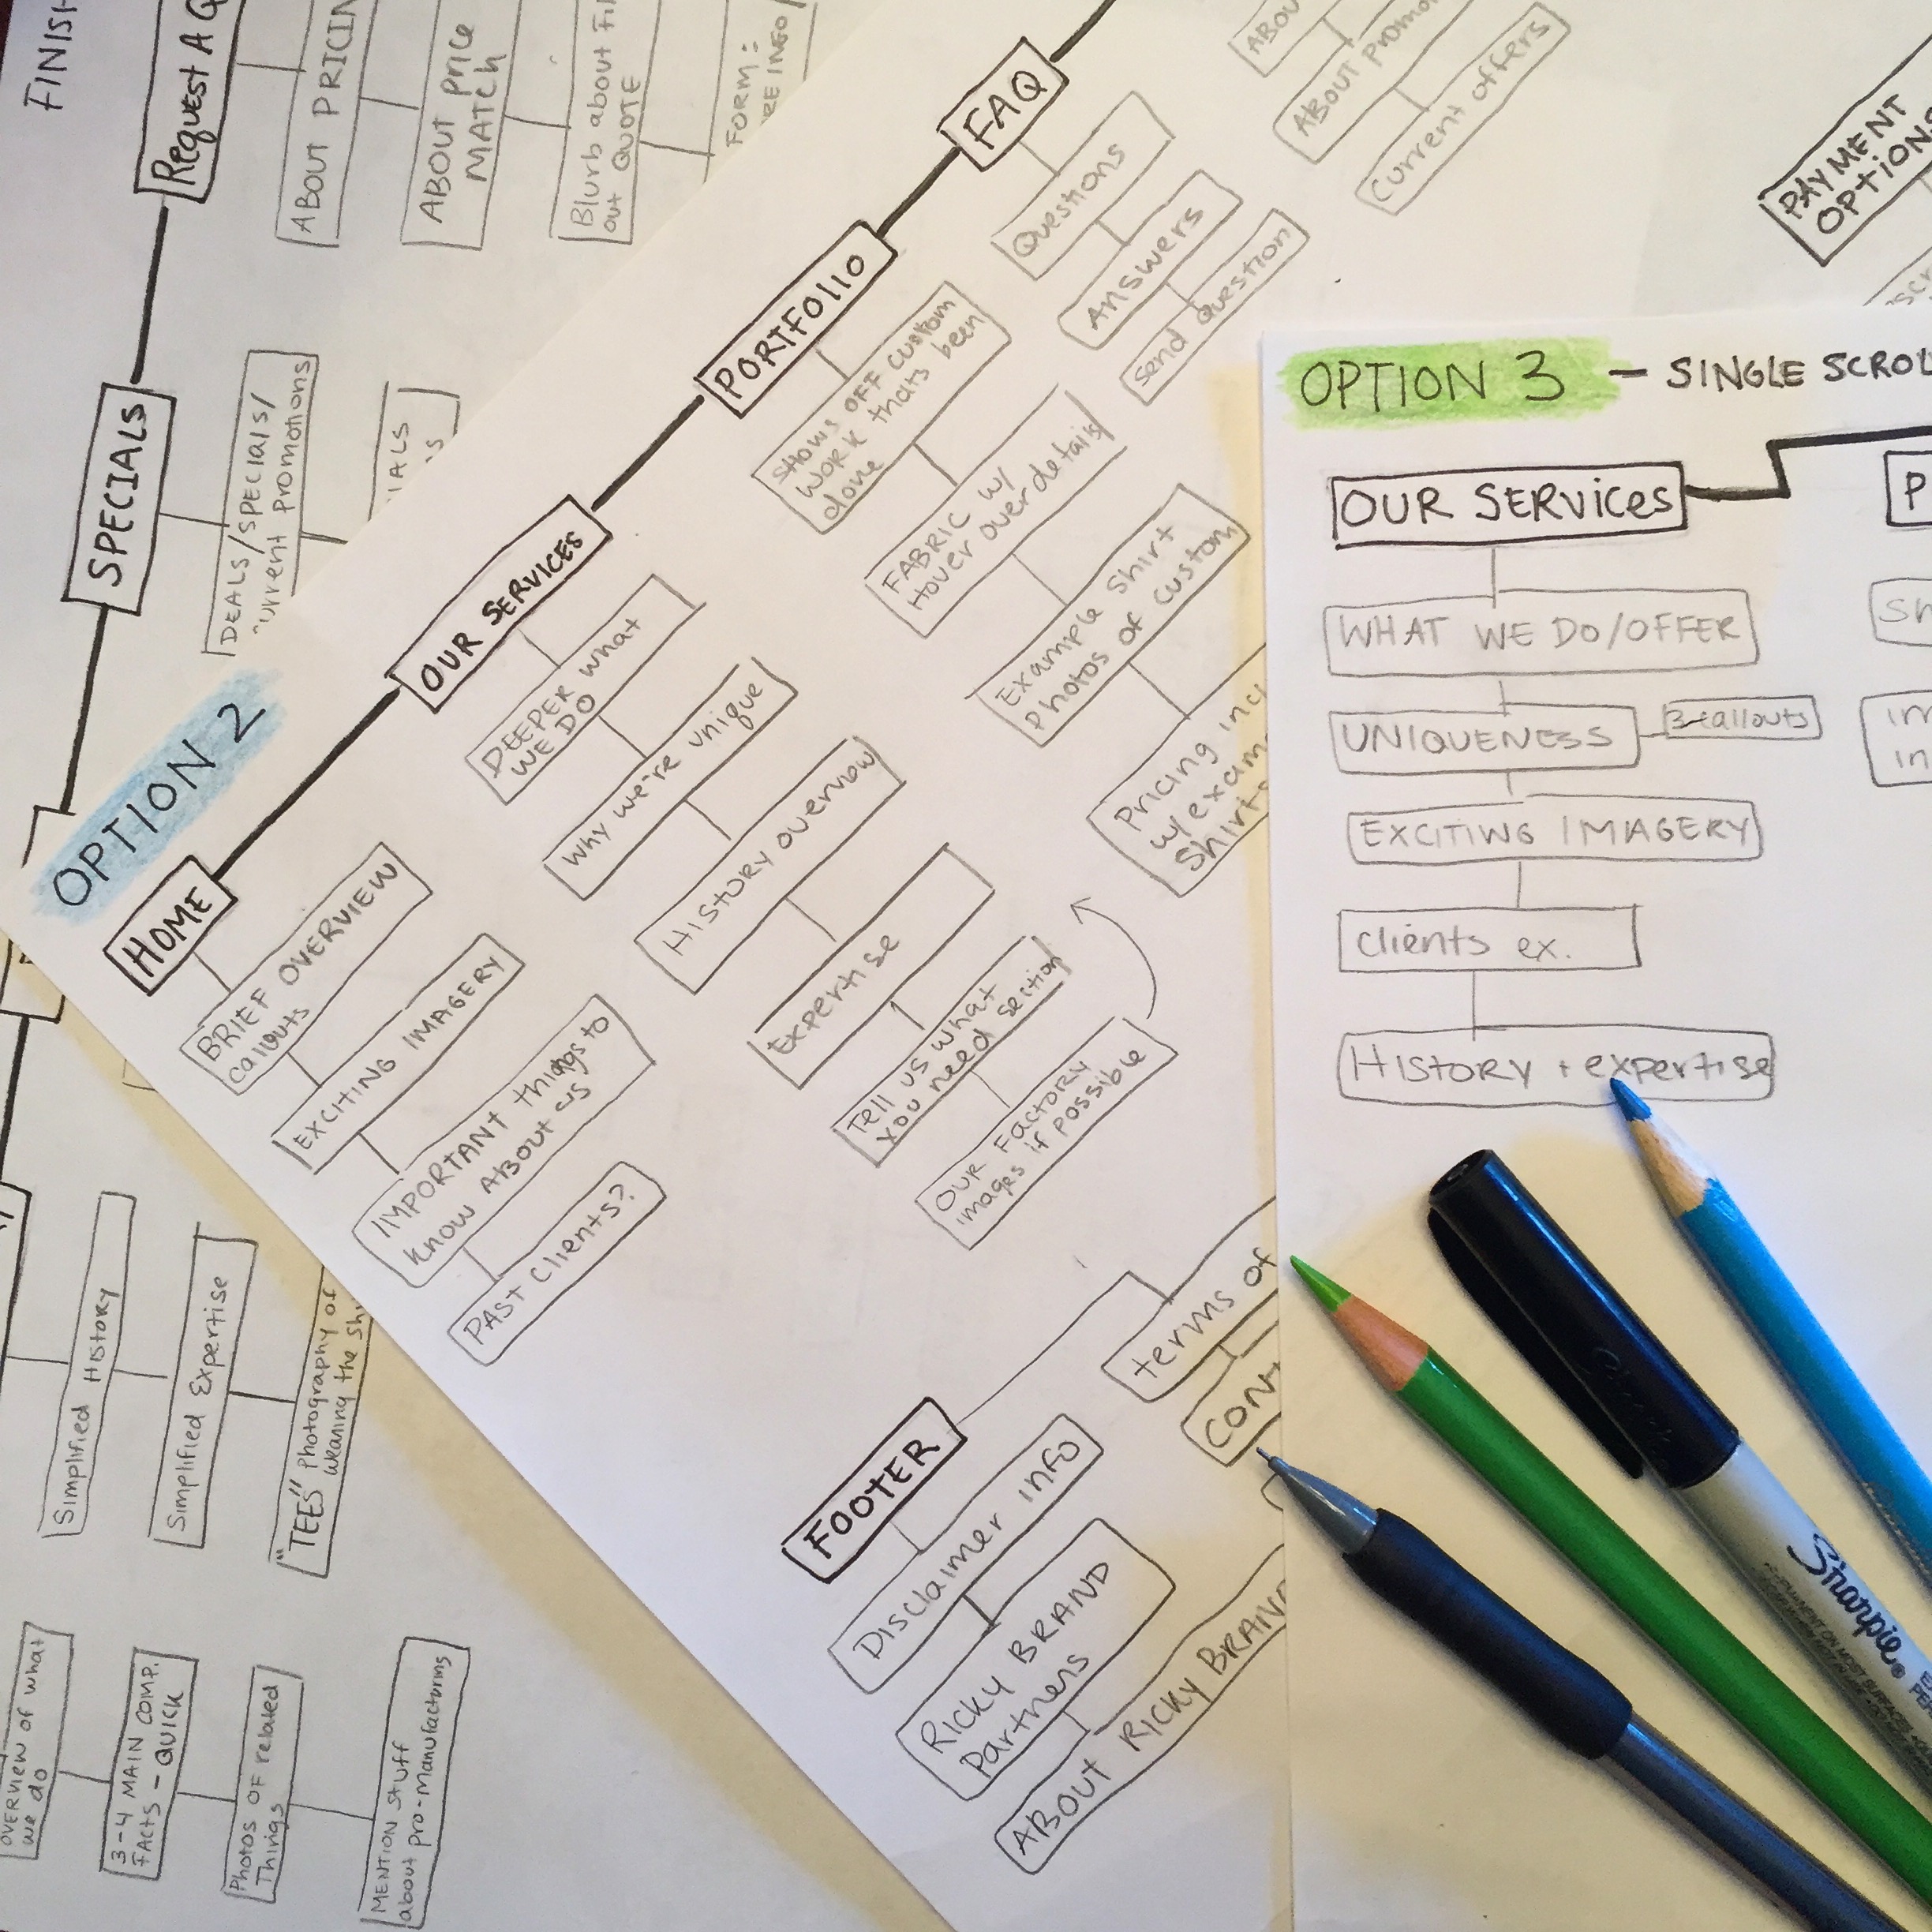 FINISH
Request A Q
ABOUT PRICIN
ABOUT Price
MATCH
Blurb about Fil
out QUOTE
FORM:
RE INFO
SPECIALS
DEALS/SPECIALS/
current Promotions
IALS
Simplified History
Simplified Expertise
"TEES" Photography of
wearing the Shi
OVERView of what
we do
3-4 MAIN COMP.
FACTS - QUICK
Photos of related
Things
MENTION Stuff
about pro-manufactoring
OPTION 2
HOME
BRIEF OVERVIEW
callouts
EXCITING IMAGERY
IMPORTANT things to
know About us
PAST Clients?
OUR SERVICES
DEEPER what
WE DO
Why we're unique
HISTORY overview
Expertise
Tell us what
you need section
OUR FACTORY
images if possible
PORTFOLIO
SHOWS OFF custom
work thats been
done
FABRIC w/
Hover over details
Example Shirt
Photos of custom
Pricing incl
w/ exam
Shirt
FAQ
Questions
Answers
Send Question
ABOU
ABOUT promo
Current offers
PAYMENT
OPTIONS
FOOTER
Disclaimer info
Ricky BRAND
Partners
ABOUT RICKY BRAND
terms of
CONT
OPTION 3 - SINGLE SCROL
OUR SERVICES
WHAT WE DO/OFFER
UNIQUENESS
3-callouts
EXCITING IMAGERY
clients ex.
HISTORY + expertise
P
Sh
im
in
Sharpie®